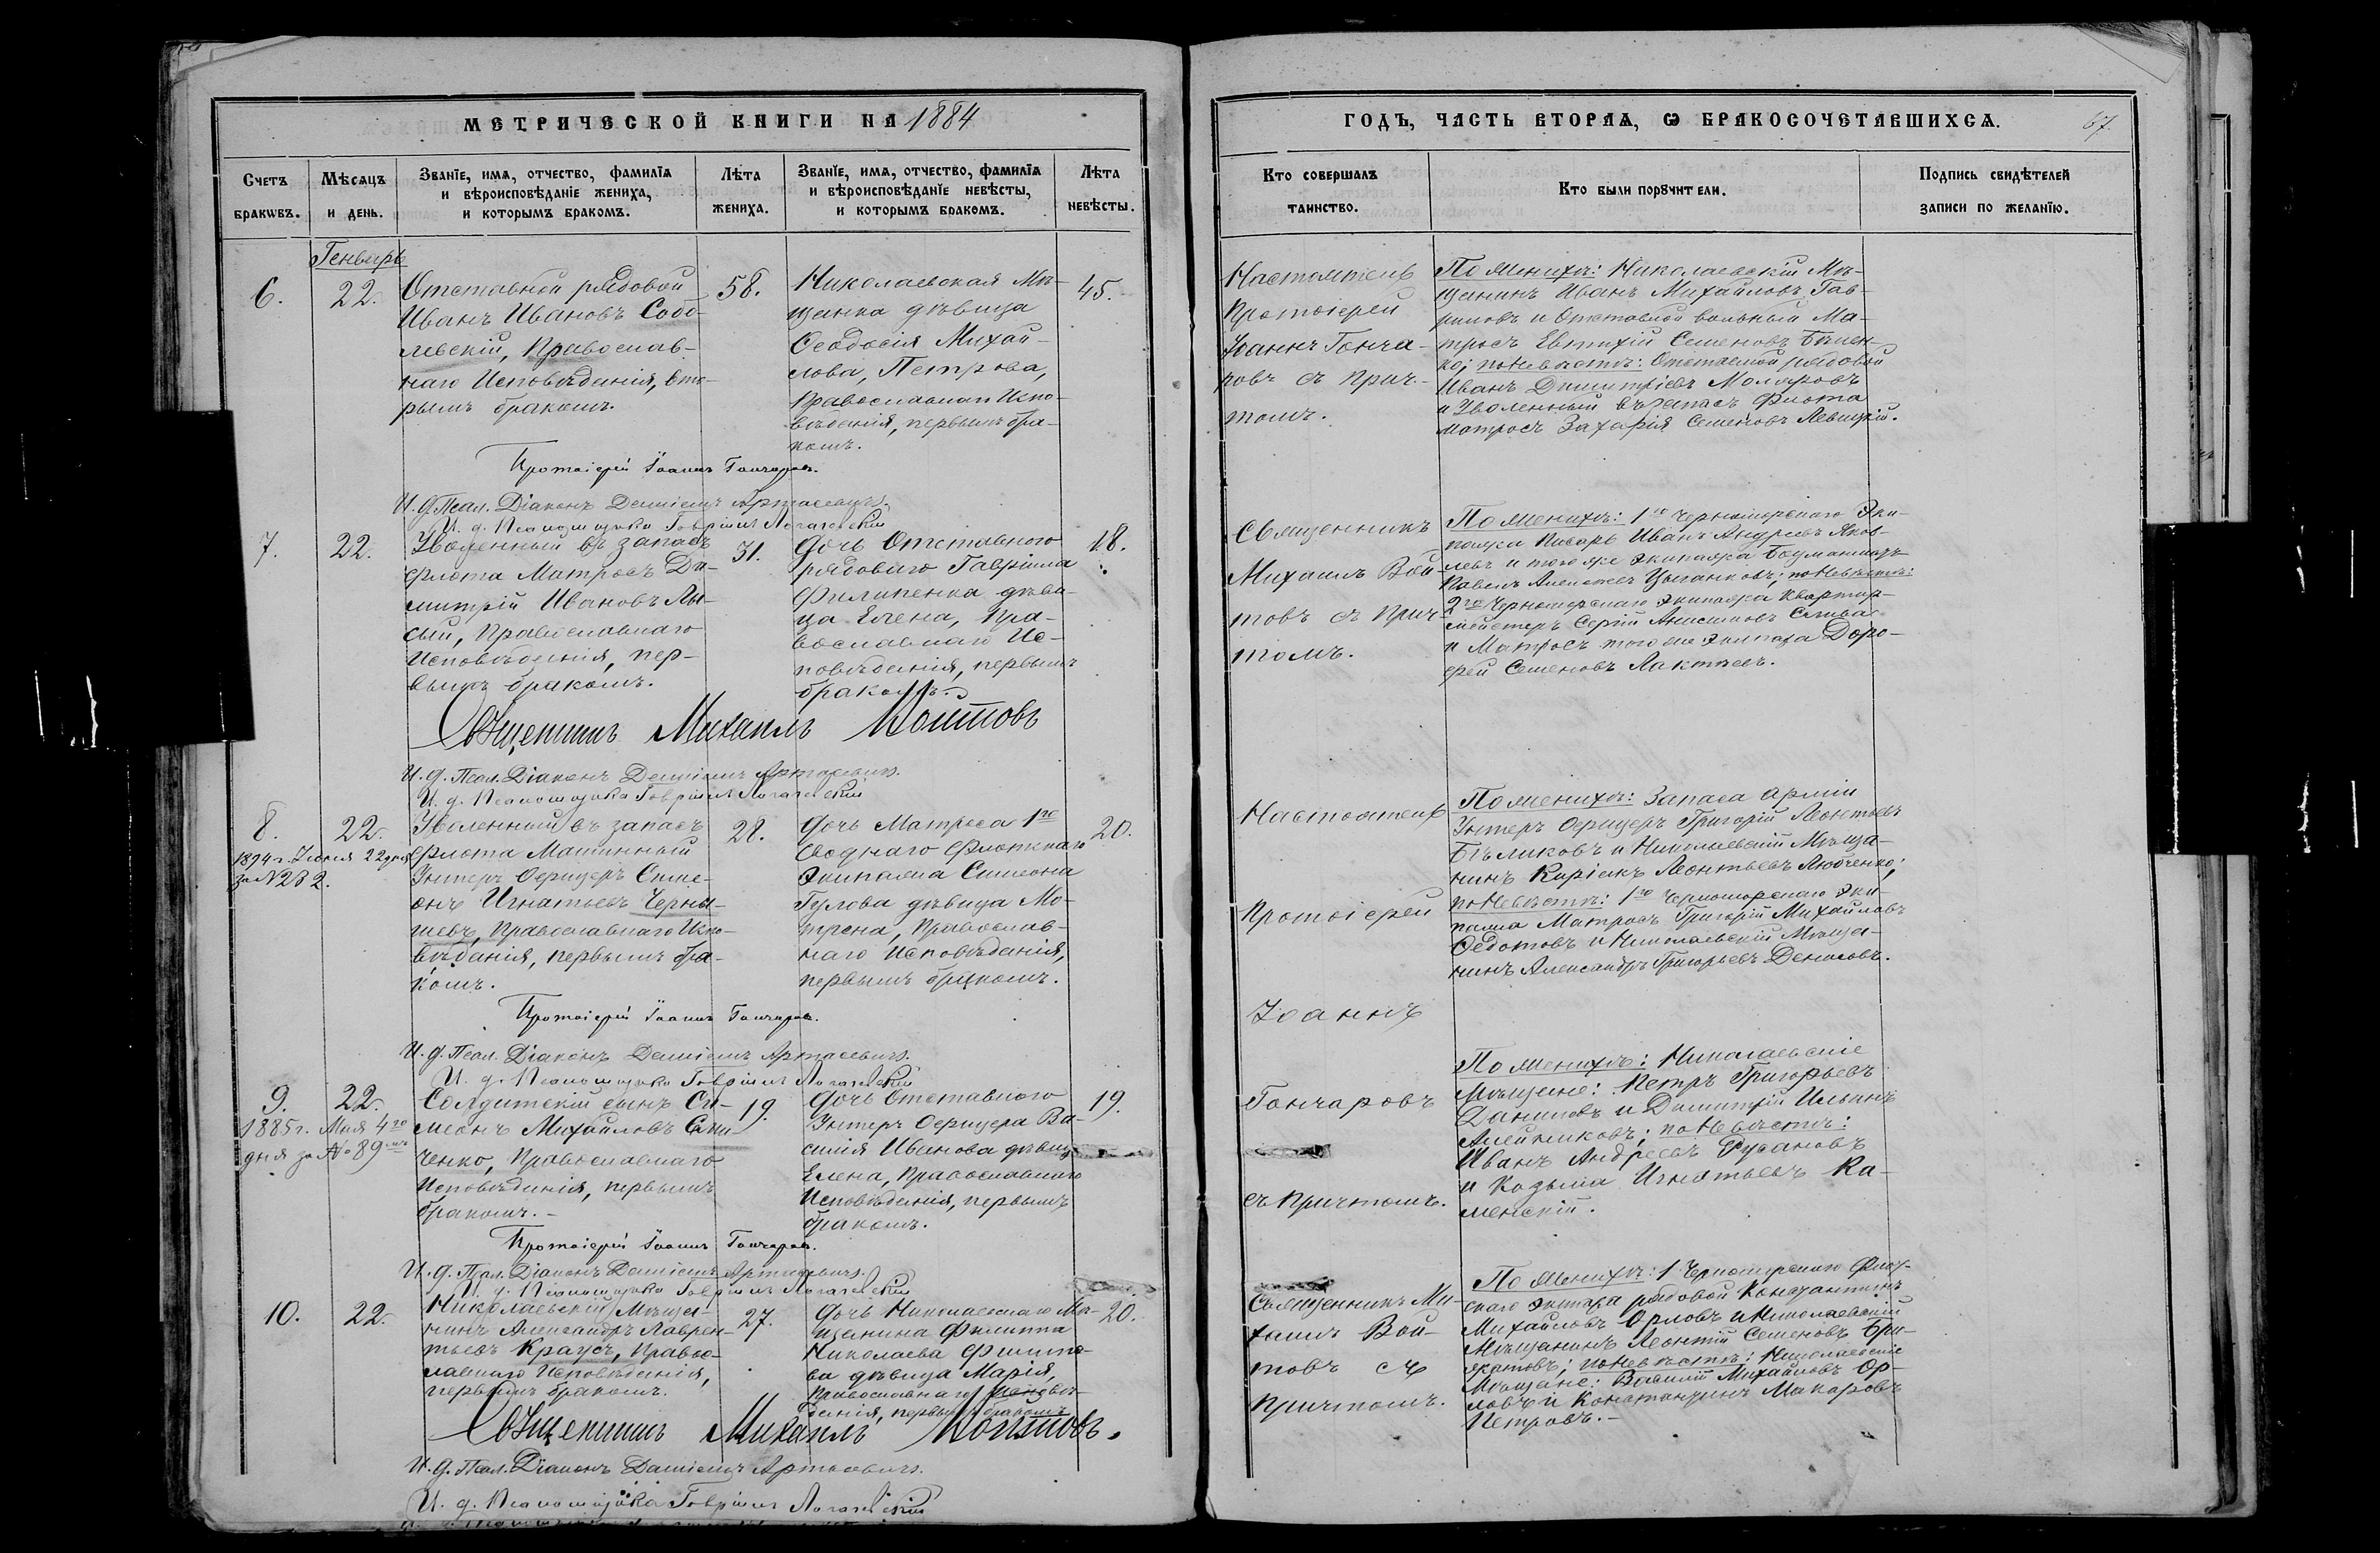 МЕТРИЧЕСКОЙ КНИГИ НА 1884
ГОДЪ, ЧАСТЬ ВТОРАѦ, Ѡ БРАКОСОЧЕТАВШИХСѦ.
67.
Счетъ браковъ.
Мѣсяцъ и день.
Званїе, имѧ, отчество, фамилїѧ
и вѣроисповѣданїе жениха,
и которымъ бракомъ.
Лѣта жениха.
Званїе, имѧ, отчество, фамилїѧ
и вѣроисповѣданїе невѣсты,
и которымъ бракомъ.
Лѣта невѣсты.
Кто совершалъ таинство.
Кто были порꙋчители.
Подпись свидѣтелей
записи по желанїю.
Генварь
6.
22.
Отставной рядовой
Иванъ Ивановъ Собо-
левскій, Православ-
наго Исповѣданія, вто-
рымъ бракомъ.
58.
Николаевская Мѣ-
щанка дѣвица
Ѳеодосія Михай-
лова, Петрова,
Православнаго Испо-
вѣданія, первымъ бра-
комъ.
45.
Настоятель
Протоіерей
Іоаннъ Гонча-
ровъ съ прич-
томъ.
По Женихѣ: Николаевскій Мѣ-
щанинъ Иванъ Михайловъ Гав-
риловъ и Отставной вольный Ма-
тросъ Евтихій Семеновъ
ко; по Невѣстѣ: Отставной рядовой
Иванъ Димитріевъ Моляровъ
и Уволенный въ запасъ Флота
матросъ Захарія Семеновъ Левицкій.
Протоіерей Іоаннъ Гончаровъ.
И. д. Псал. Діаконъ Даміанъ Артасевичъ.
И. д. Псаломщика Гавріилъ
7.
22.
Уволенный въ запасъ
Флота Матросъ Ди-
митрій Ивановъ Лы-
сый, Православнаго
Исповѣданія, пер-
вымъ бракомъ.
31.
Дочь Отставного
рядоваго Гавріила
Филипенка дѣви-
ца Елена, Пра-
вославнаго Ис-
повѣданія, первымъ
бракомъ.
18.
Священникъ
Михаилъ Вой-
товъ съ Прич-
томъ.
По Женихѣ: 1го Черноморскаго Эки-
пажа Писарь Иванъ Андреевъ Яков-
левъ и того же экипажа Боцманматъ
Павелъ Алексѣевъ Цыганковъ; по Невѣстѣ:
2го Черноморскаго Экипажа Квартир-
мейстеръ Сергій Анисимовъ Слива
и Матросъ того же Экипажа Доро-
фей Семеновъ Лактѣевъ.
Священникъ Михаилъ Войтовъ
И. д. Псал. Діаконъ Даміанъ Артасевичъ.
И. д. Псаломщика Гавріилъ
8.
1894 г. Іюня 22 дня
за №282.
22.
Уволенный въ запасъ
Флота Машинный
Унтеръ Офицеръ Симе-
онъ Игнатьевъ Черны-
шевъ, Православнаго Испо-
вѣданія, первымъ бра-
комъ.
28.
Дочь Матроса 1го
Своднаго Флотскаго
Экипажа Симеона
Гулова дѣвица Мо-
трена, Православ-
наго Исповѣданія,
первымъ бракомъ.
20.
Настоятель
Протоіерей
Іоаннъ
Гончаровъ
съ причтомъ.
По Женихѣ: Запаса арміи
Унтеръ Офицеръ Григорій Леонтьевъ
Бѣликовъ и Николаевскій Мѣща-
нинъ Киріакъ Леонтьевъ Любченко;
по Невѣстѣ: 1го Черноморскаго Эки-
пажа Матросъ Григорій Михайловъ
Ѳедотовъ и Николаевскій Мѣща-
нинъ Александръ Григорьевъ Денисовъ.
Протоіерей Іоаннъ Гончаровъ.
И. д. Псал. Діаконъ Даміанъ Артасевичъ.
И. д. Псаломщика Гавріилъ
9.
1885 г. Мая 4го
дня за №89мъ
22.
Солдатскій сынъ Си-
меонъ Михайловъ
ченко, Православнаго
Исповѣданія, первымъ
бракомъ.
19.
Дочь Отставного
Унтеръ Офицера Ва-
силія Иванова дѣвица
Елена, Православнаго
Исповѣданія, первымъ
бракомъ.
19.
По Женихѣ: Николаевскіе
Мѣщане: Петръ Григорьевъ
Даниловъ и Димитрій Ильинъ
Алейниковъ; по Невѣстѣ:
Иванъ Андреевъ Русановъ
и Козьма Игнатьевъ Ка-
менскій.
Протоіерей Іоаннъ Гончаровъ.
И. д. Псал. Діаконъ Даміанъ Артасевичъ.
И. д. Псаломщика Гавріилъ
10.
22.
Николаевскій Мѣща-
нинъ Александръ Лаврен-
тьевъ Краусъ, Правос-
лавнаго Исповѣданія,
первымъ бракомъ.
27.
Дочь Николаевскаго Мѣ-
щанина Филиппа
Николаева Филипо-
ва дѣвица Марія,
Православнаго Исповѣ-
данія, первымъ бракомъ
20.
Священникъ Ми-
хаилъ Вой-
товъ съ
Причтомъ.
По Женихѣ: 1 Черноморскаго Флот-
скаго экипажа рядовой Константинъ
Михайловъ Орловъ и Николаевскій
Мѣщанинъ Леонтій Семеновъ
по Невѣстѣ: Николаевскіе
Мѣщане: Василій Михайловъ Ор-
ловъ и Константинъ Макаровъ
Петровъ.
Священникъ Михаилъ Войтовъ.
И. д. Псал. Діаконъ Даміанъ Артасевичъ.
И. д. Псаломщика Гавріилъ